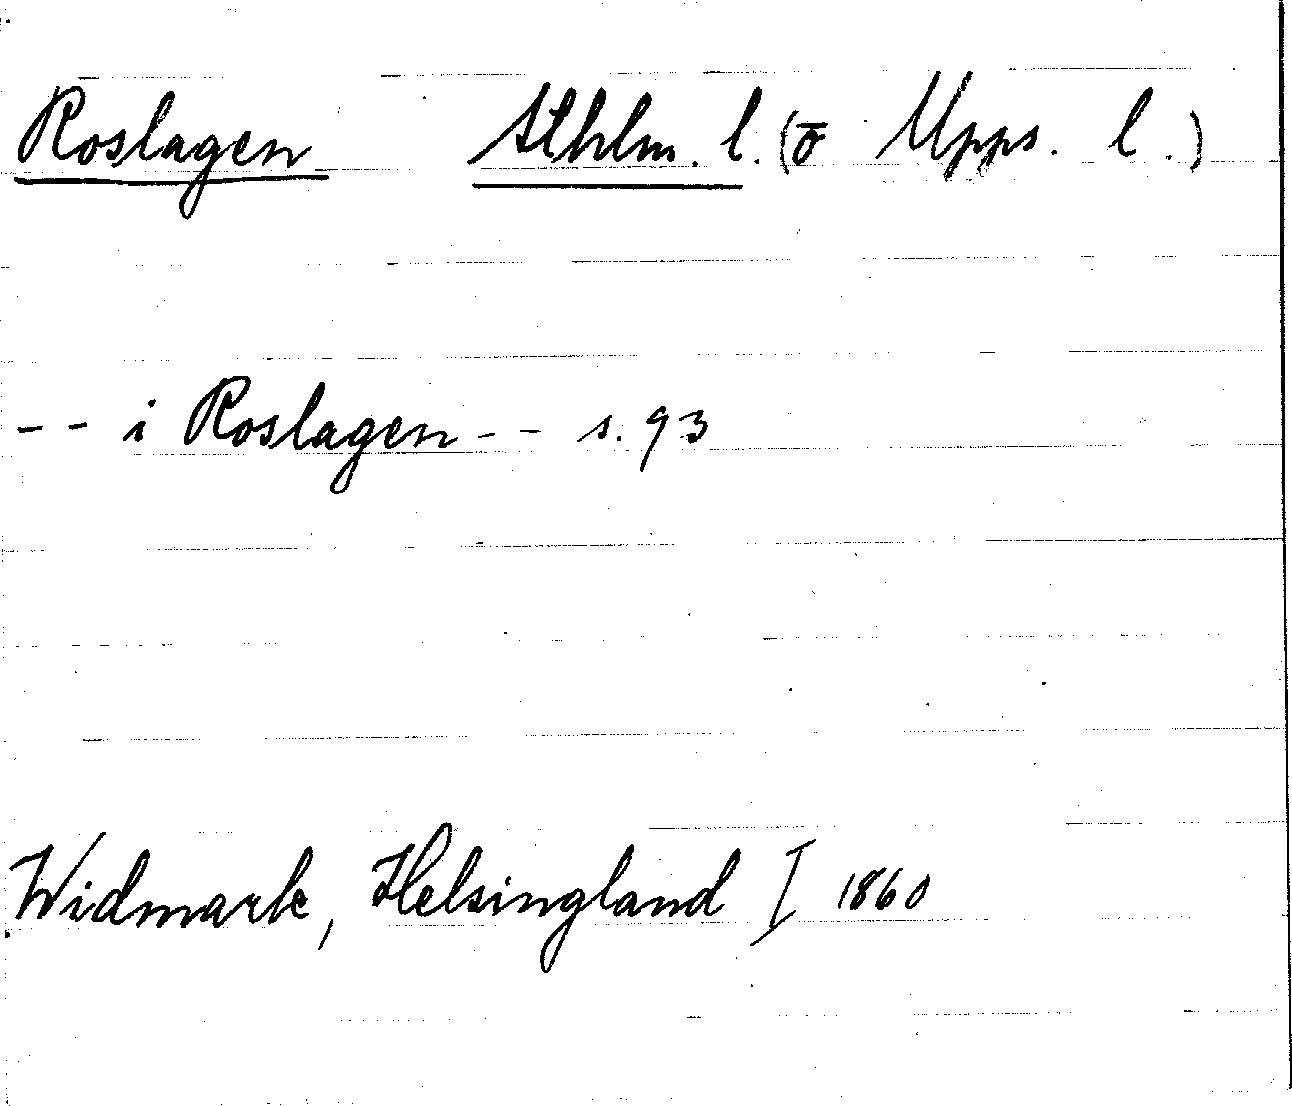 Roslagen Sthlm. l. (o Upps. l.)
-- i Roslagen -- s. 93
Widmark, Helsingland I 1860